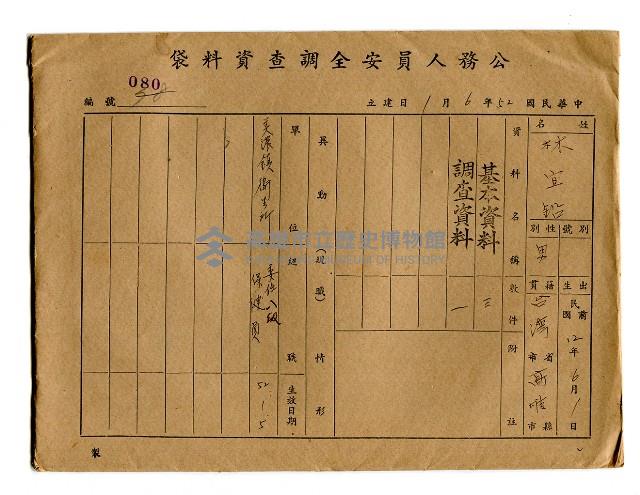 公務人員安全調查資料袋
編號 080
中華民國52年6月1日建立
姓名 林宜鉛
別號
性別 男
出生 民國前12年6月1日
籍貫 台灣省市 縣市
資料名稱 基本資料 調查資料
件數 三 一
附註
異動(現職)情形
單位 美濃鎮衛生所
職級 委任八級 保健員
生效日期 52.1.5
製
高雄市立歷史博物館
MUSEUM OF HISTORY